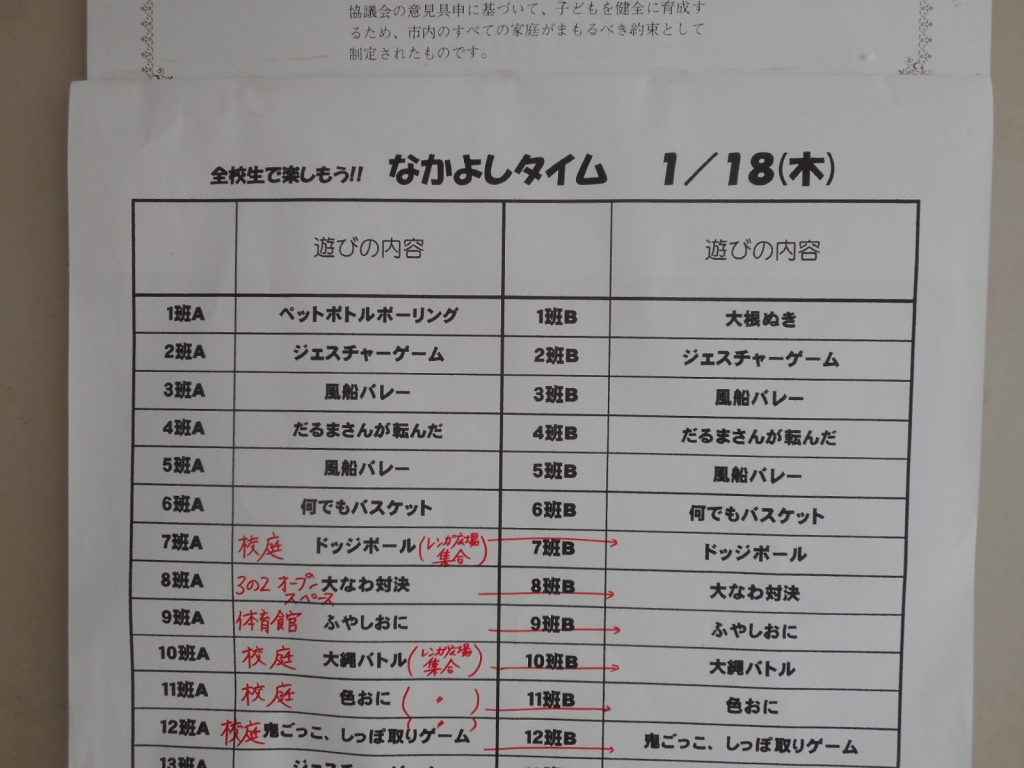 協議会の意見具申に基づいて、子どもを健全に育成す
るため、市内のすべての家庭がまもるべき約束として
制定されたものです。
全校生で楽しもう!! なかよしタイム 1/18(木)
遊びの内容 遊びの内容
1班A ペットボトルボーリング 1班B 大根ぬき
2班A ジェスチャーゲーム 2班B ジェスチャーゲーム
3班A 風船バレー 3班B 風船バレー
4班A だるまさんが転んだ 4班B だるまさんが転んだ
5班A 風船バレー 5班B 風船バレー
6班A 何でもバスケット 6班B 何でもバスケット
7班A 校庭 ドッジボール(レンガ広場集合) 7班B ドッジボール
8班A 3の2 オープンスペース 大なわ対決 8班B 大なわ対決
9班A 体育館 ふやしおに 9班B ふやしおに
10班A 校庭 大縄バトル(レンガ広場集合) 10班B 大縄バトル
11班A 校庭 色おに (〃) 11班B 色おに
12班A 校庭 鬼ごっこ、しっぽ取りゲーム (〃) 12班B 鬼ごっこ、しっぽ取りゲーム
13班A ジェスチャーゲーム